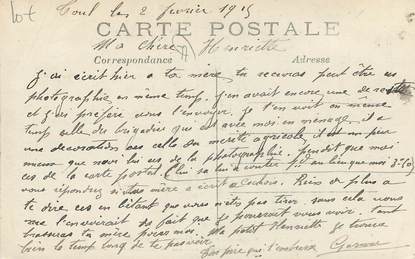 lot
Toul les 2 fevrier 1915
CARTE POSTALE
Ma chère Henriette
Correspondance Adresse
J'ai écrit hier a ta mère tu recevras peut être une
photographie en même temp. J'en avait encore une de
et j'ai préféré vous l'envoyer. Je t'en voit en même
temp celle des brigadier qui est avec moi en menage, il a
une decoration ces celle du merite agricole. il est un peu
mieux que moi lui ces de la photographie. pendit que moi
ces de la carte postal.
vous répondrez si ta mère a écrit a Rien de plus a
te dire ces en litant que vous n'ete pas tirer sous cela vous
me l'envoirait de fait que je pourrait vous avoir. tant
brasseras ta mère pour moi. Ma petit Henriette je trouve
bien le temp long de te pas voir.
Ton père qui t'embrasse